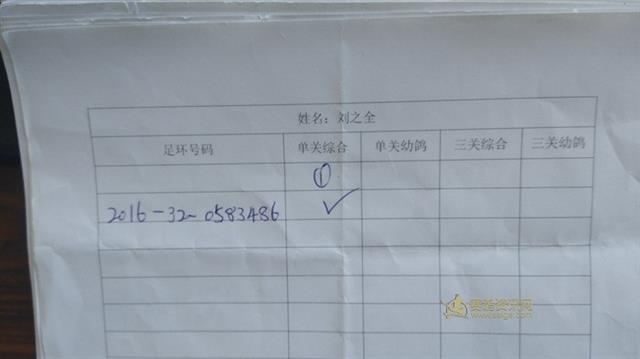 姓名：刘之全
足环号码 单关综合 单关幼鸽 三关综合 三关幼鸽
①
2016-32-0583486 ✓